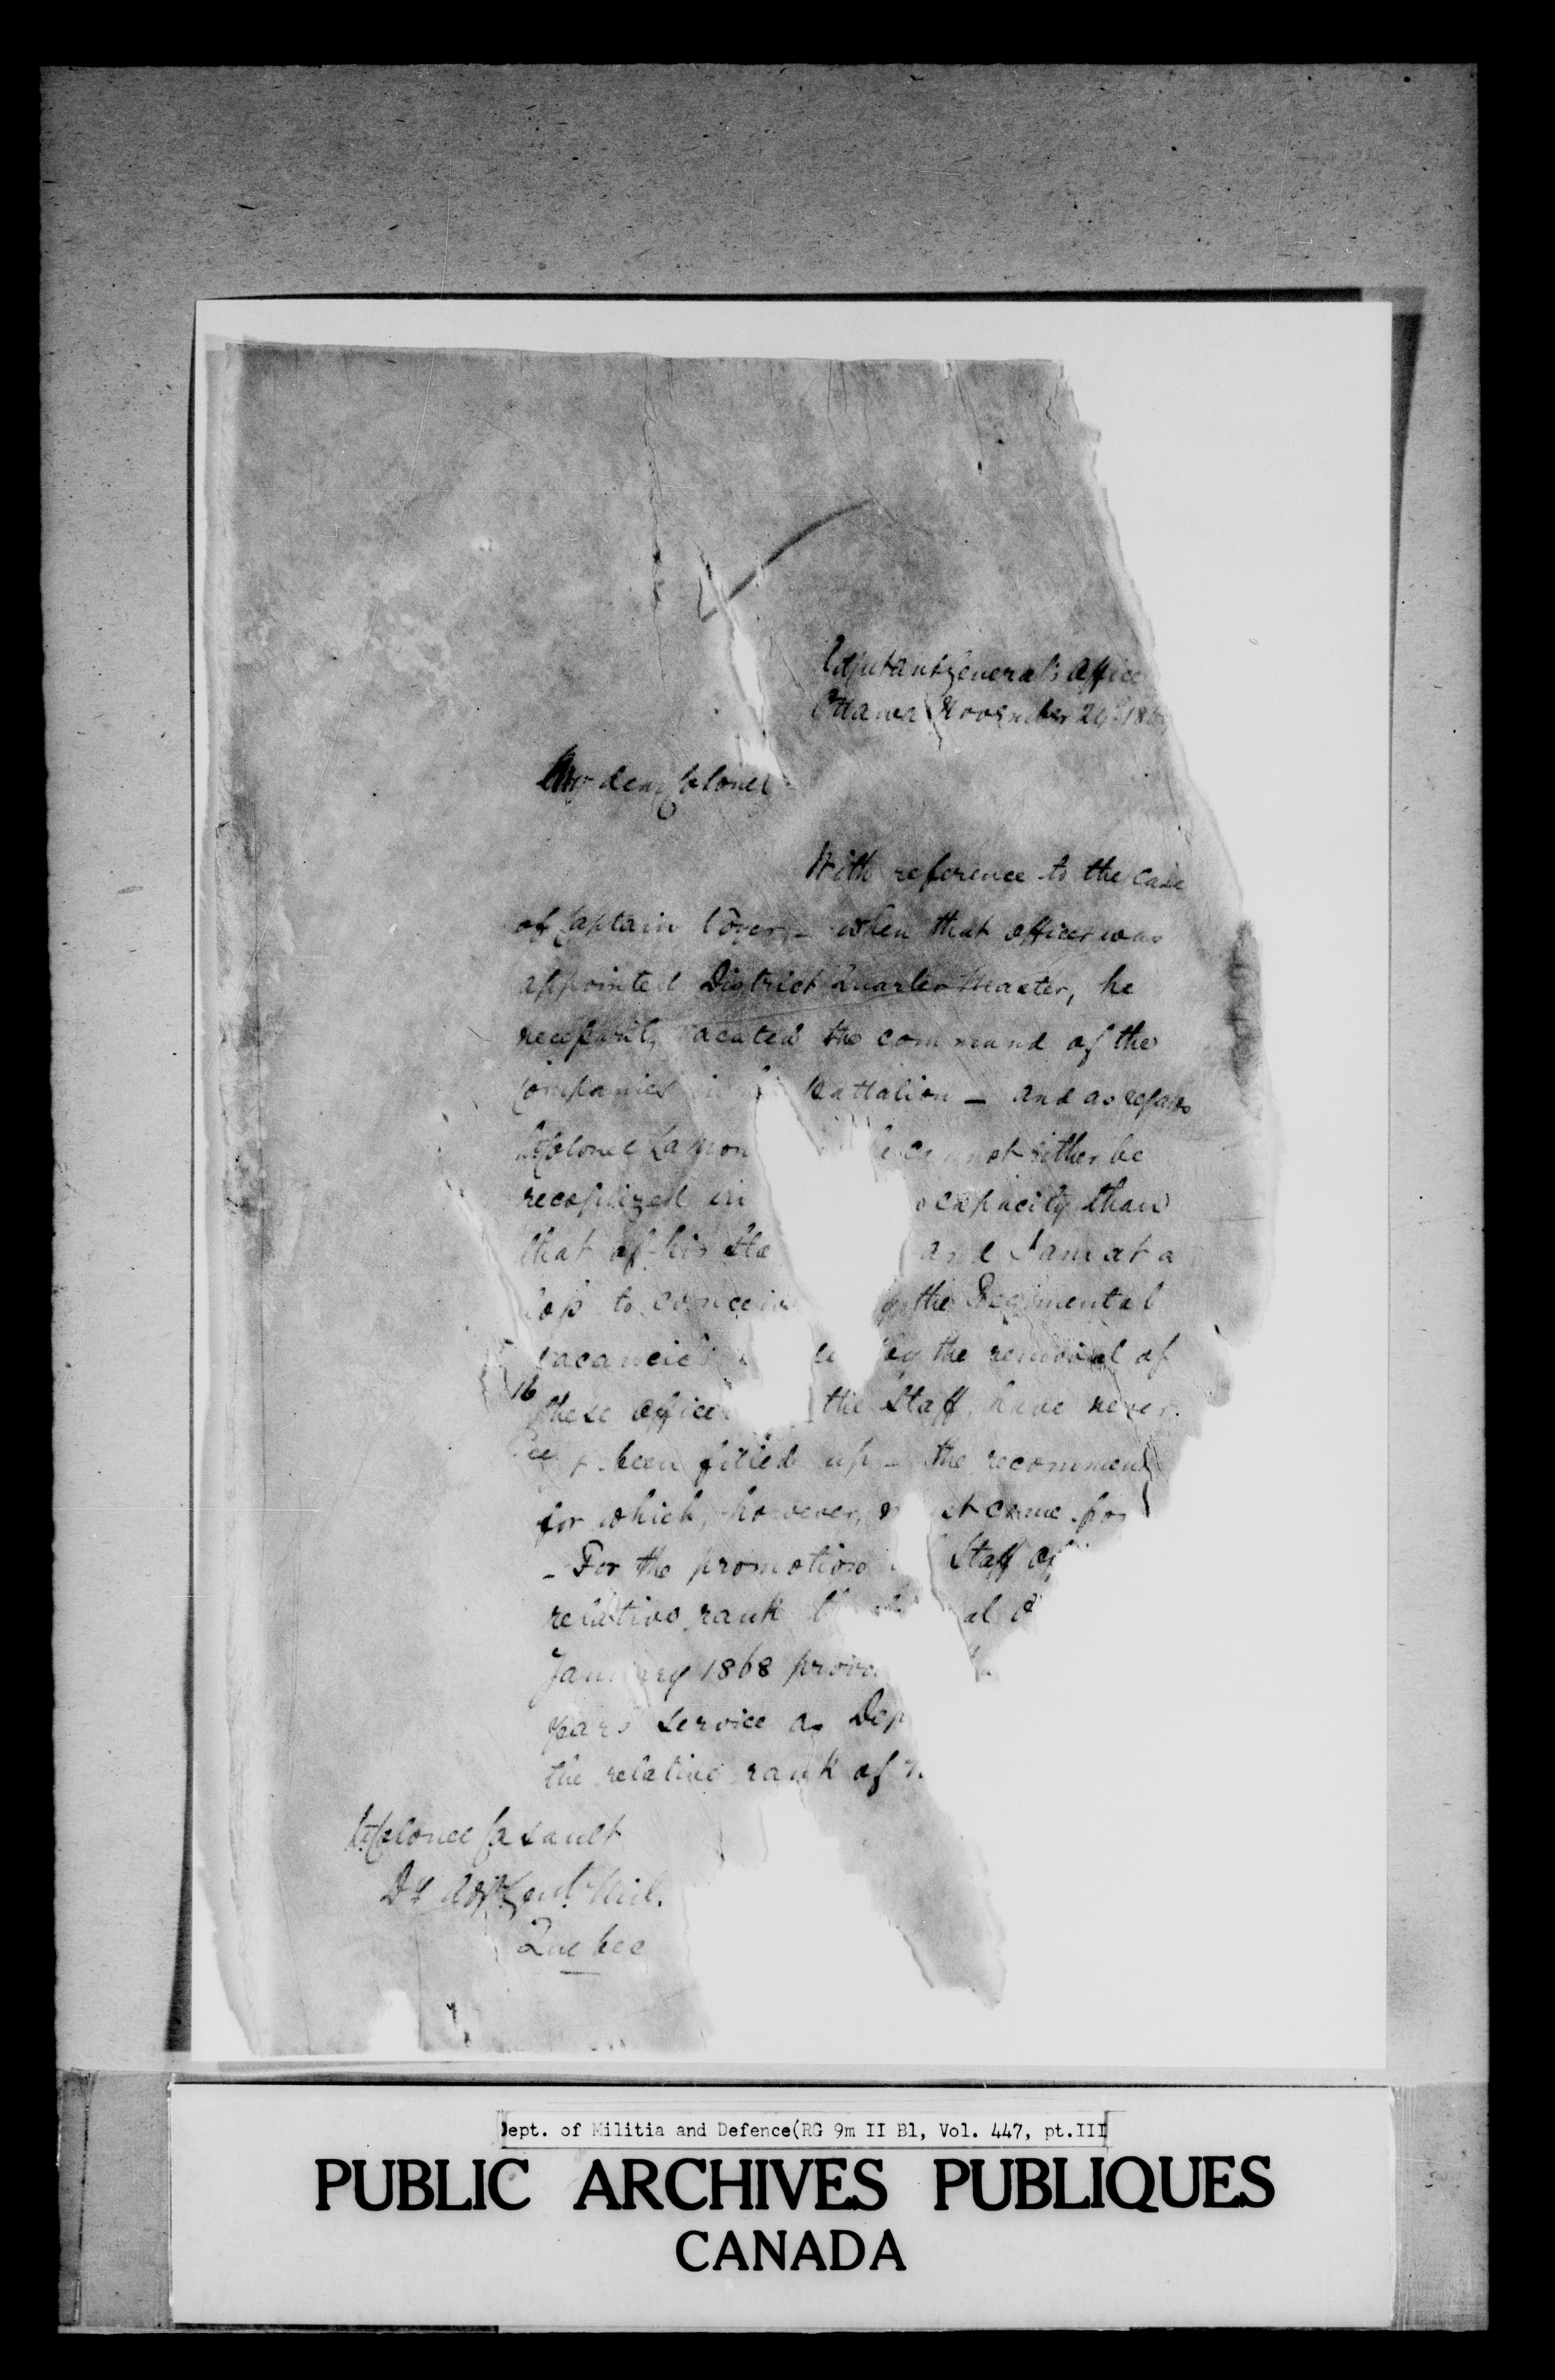 Adjutant General's Office
Ottawa November 24th 186
My dear Colonel
With reference to the case
of Captain Voyer, – when that officer was
appointed District Quarter Master, he
necessarily vacated the command of the
Companies in Battalion – and as regards
Lt Colonel Lamon he cannot either be
recognized in capacity than
that of his Sta and I am at a
loss to conceive the Regimental
vacancies by the removal of
16
these officer the Staff, have never
been filled up – the recommen
for which, however, must come
– For the promotion Staff Of
relative rank the al
January 1868 provi
years service as Dep
the relative rank of
Lt Colonel Casault
Dy Adjt Genl Mil.
Quebec
Dept. of Militia and Defence(RG 9m II B1, Vol. 447, pt.III
PUBLIC ARCHIVES PUBLIQUES
CANADA